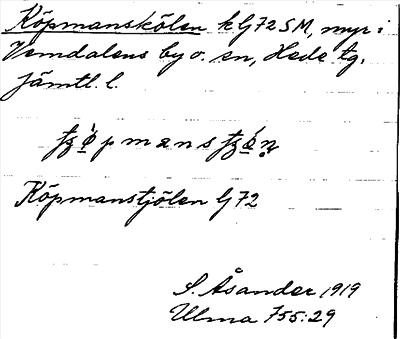 Köpmanskölen k Lj 72 SM, myr i
Vemdalens by o. sn, Hede tg.
Jämtl. l.
Köpmanstjölen Lj 72
S. Åsander 1919
Ulma 755:29